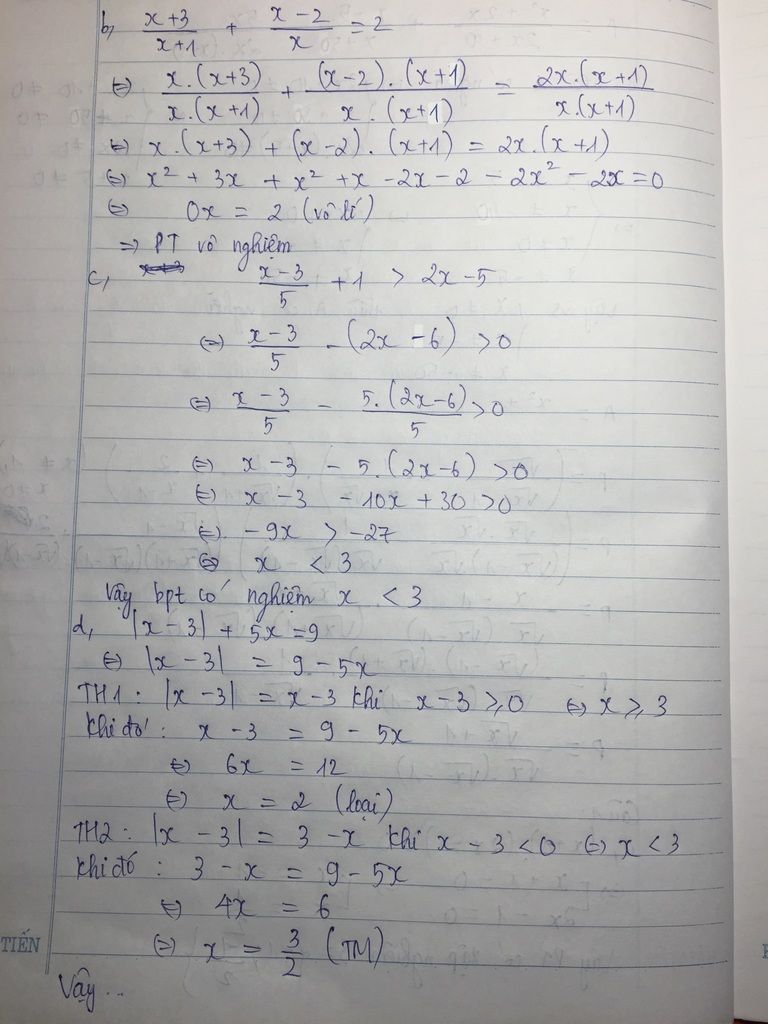 b, \frac{x+3}{x+1} + \frac{x-2}{x} = 2
⇔ \frac{x.(x+3)}{x.(x+1)} + \frac{(x-2).(x+1)}{x.(x+1)} = \frac{2x.(x+1)}{x.(x+1)}
⇔ x.(x+3) + (x-2).(x+1) = 2x.(x+1)
⇔ x² + 3x + x² + x - 2x - 2 - 2x² - 2x = 0
⇔ 0x = 2 (vô lí)
⇒ PT vô nghiệm
c, \frac{x-3}{5} + 1 > 2x - 5
⇔ \frac{x-3}{5} - (2x - 6) > 0
⇔ \frac{x-3}{5} - \frac{5.(2x-6)}{5} > 0
⇔ x - 3 - 5.(2x-6) > 0
⇔ x - 3 - 10x + 30 > 0
⇔ -9x > -27
⇔ x < 3
Vậy bpt có nghiệm x < 3
d, |x - 3| + 5x = 9
⇔ |x - 3| = 9 - 5x
TH1 : |x - 3| = x - 3 khi x - 3 ⩾ 0 ⇔ x ⩾ 3
Khi đó : x - 3 = 9 - 5x
⇔ 6x = 12
⇔ x = 2 (loại)
TH2 : |x - 3| = 3 - x khi x - 3 < 0 ⇔ x < 3
Khi đó : 3 - x = 9 - 5x
⇔ 4x = 6
⇔ x = \frac{3}{2} (TM)
TIẾN
Vậy ...